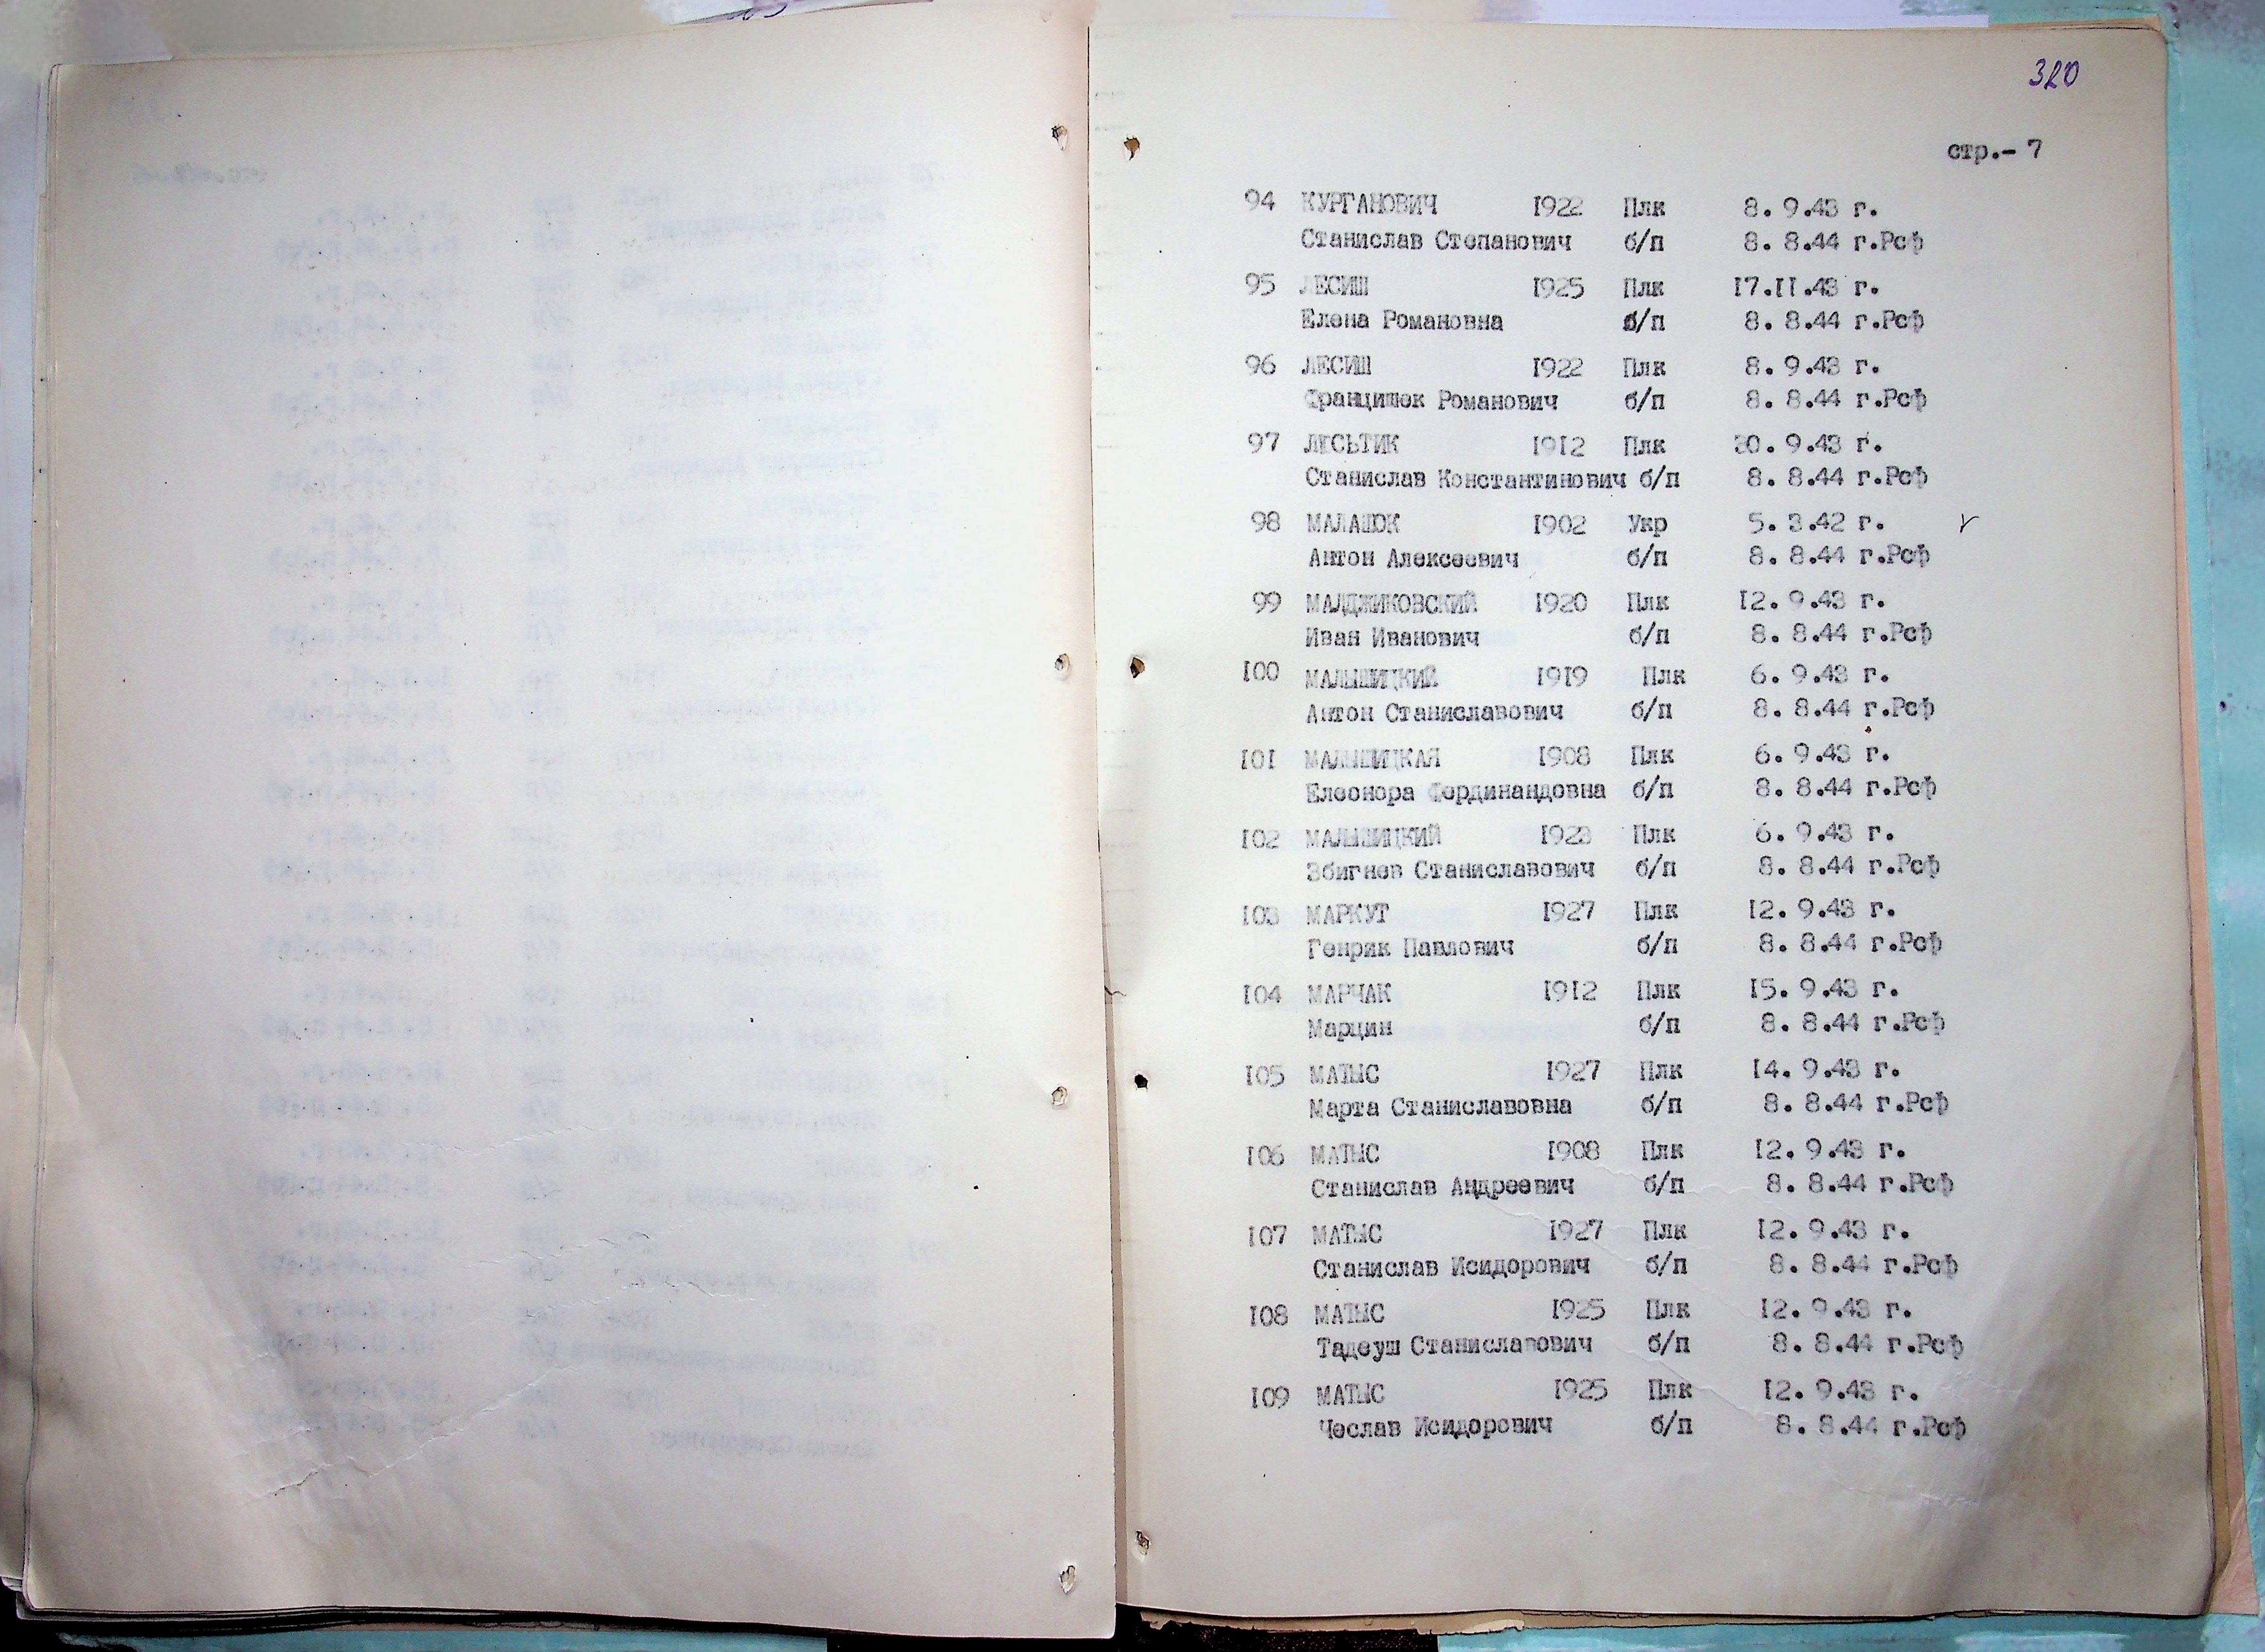 320
стр.- 7
94 КУРГАНОВИЧ 1922 Плк 8. 9.43 г.
Станислав Степанович б/п 8. 8.44 г.Рсф
95 ЛЕСИШ 1925 Плк 17.11.43 г.
Елена Романовна б/п 8. 8.44 г.Рсф
96 ЛЕСИШ 1922 Плк 8. 9.43 г.
Францишек Романович б/п 8. 8.44 г.Рсф
97 ЛЕСЬТИК 1912 Плк 9.43 г.
Станислав Константинович б/п 8. 8.44 г.Рсф
98 МАЛАШОК 1902 Укр 5. 3.42 г.
Антон Алексеевич б/п 8. 8.44 г.Рсф
99 МАЛДЖИКОВСКИЙ 1920 Плк 12. 9.43 г.
Иван Иванович б/п 8. 8.44 г.Рсф
100 МАЛЫШИЦКИЙ 1919 Плк 6. 9.43 г.
Антон Станиславович б/п 8. 8.44 г.Рсф
101 МАЛЫШИЦКАЯ 1908 Плк 6. 9.43 г.
Елеонора Фердинандовна б/п 8. 8.44 г.Рсф
102 МАЛЫШИЦКИЙ 1923 Плк 6. 9.43 г.
Збигнев Станиславович б/п 8. 8.44 г.Рсф
103 МАРКУТ 1927 Плк 12. 9.43 г.
Генрик Павлович б/п 8. 8.44 г.Рсф
104 МАРЧАК 1912 Плк 15. 9.43 г.
Марцин б/п 8. 8.44 г.Рсф
105 МАТЫС 1927 Плк 14. 9.43 г.
Марта Станиславовна б/п 8. 8.44 г.Рсф
106 МАТЫС 1908 Плк 12. 9.43 г.
Станислав Андреевич б/п 8. 8.44 г.Рсф
107 МАТЫС 1927 Плк 12. 9.43 г.
Станислав Исидорович б/п 8. 8.44 г.Рсф
108 МАТЫС 1925 Плк 12. 9.43 г.
Тадеуш Станиславович б/п 8. 8.44 г.Рсф
109 МАТЫС 1925 Плк 12. 9.43 г.
Чеслав Исидорович б/п 8. 8.44 г.Рсф